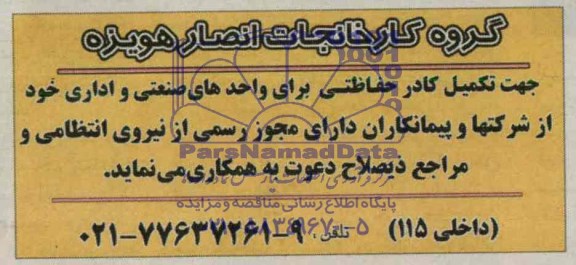 گروه کارخانجات انصار هویزه
جهت تکمیل کادر حفاظتی برای واحد های صنعتی و اداری خود
از شرکتها و پیمانکاران دارای مجوز رسمی از نیروی انتظامی و
ParsNamadData
مراجع ذیصلاح دعوت به همکاری می نماید.
پایگاه اطلاع رسانی مناقصه و مزایده
تلفن: ۹-۷۷۶۳۷۲۶۱-۰۲۱ (داخلی ۱۱۵)